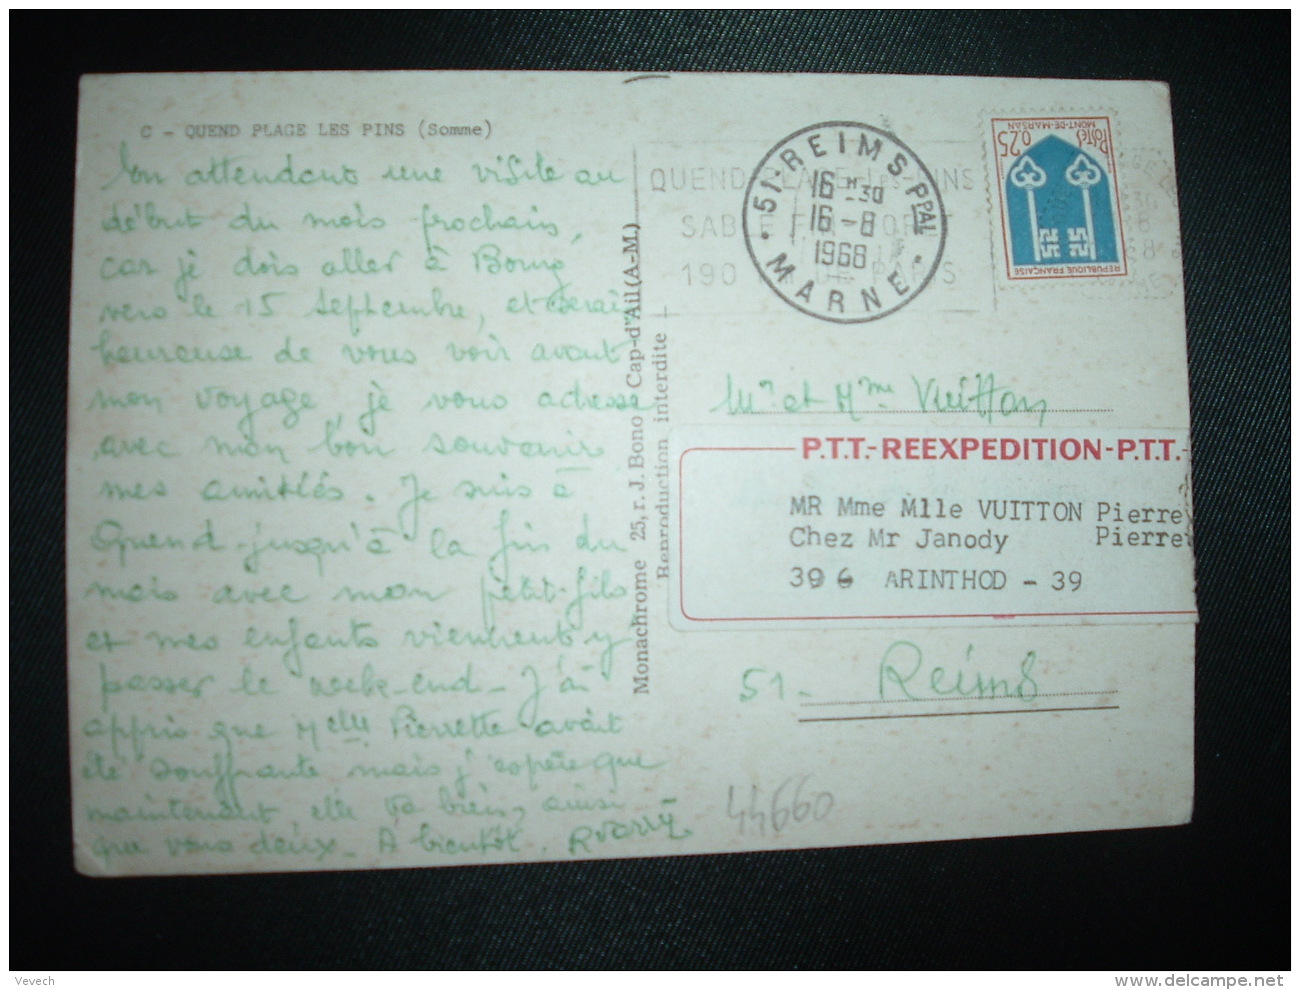 C - QUEND PLAGE LES PINS (Somme)
En attendant une visite au
début du mois prochain,
car je dois aller à Bourg
vers le 15 Septembre, et serai
heureuse de vous voir avant
mon voyage, je vous adresse
avec mon bon souvenir
mes amitiés. Je suis à
Quend jusqu'à la fin du
mois avec mon petit-fils
et mes enfants viennent y
passer le week-end - J'ai
appris que Melle Pierrette avait
été souffrante mais j'espère que
maintenant, elle va bien, ainsi
que vous deux - A bientôt.
Monachrome 25, r. J. Bono Cap-d'Ail (A-M.)
Reproduction interdite
QUEND PLAGE LES PINS
SABLE FIN FORET
190 PARIS
51-REIMS PPAL
16 H 30
16-8
1968
MARNE
POSTES
0,25
MONT-DE-MARSAN
REPUBLIQUE FRANÇAISE
Mr et Mme Vuitton
P.T.T.-REEXPEDITION-P.T.T.-
MR Mme Mlle VUITTON Pierre
Chez Mr Janody Pierre
39 6 ARINTHOD - 39
51 - Reims
44660
Vevech
www.delcampe.net